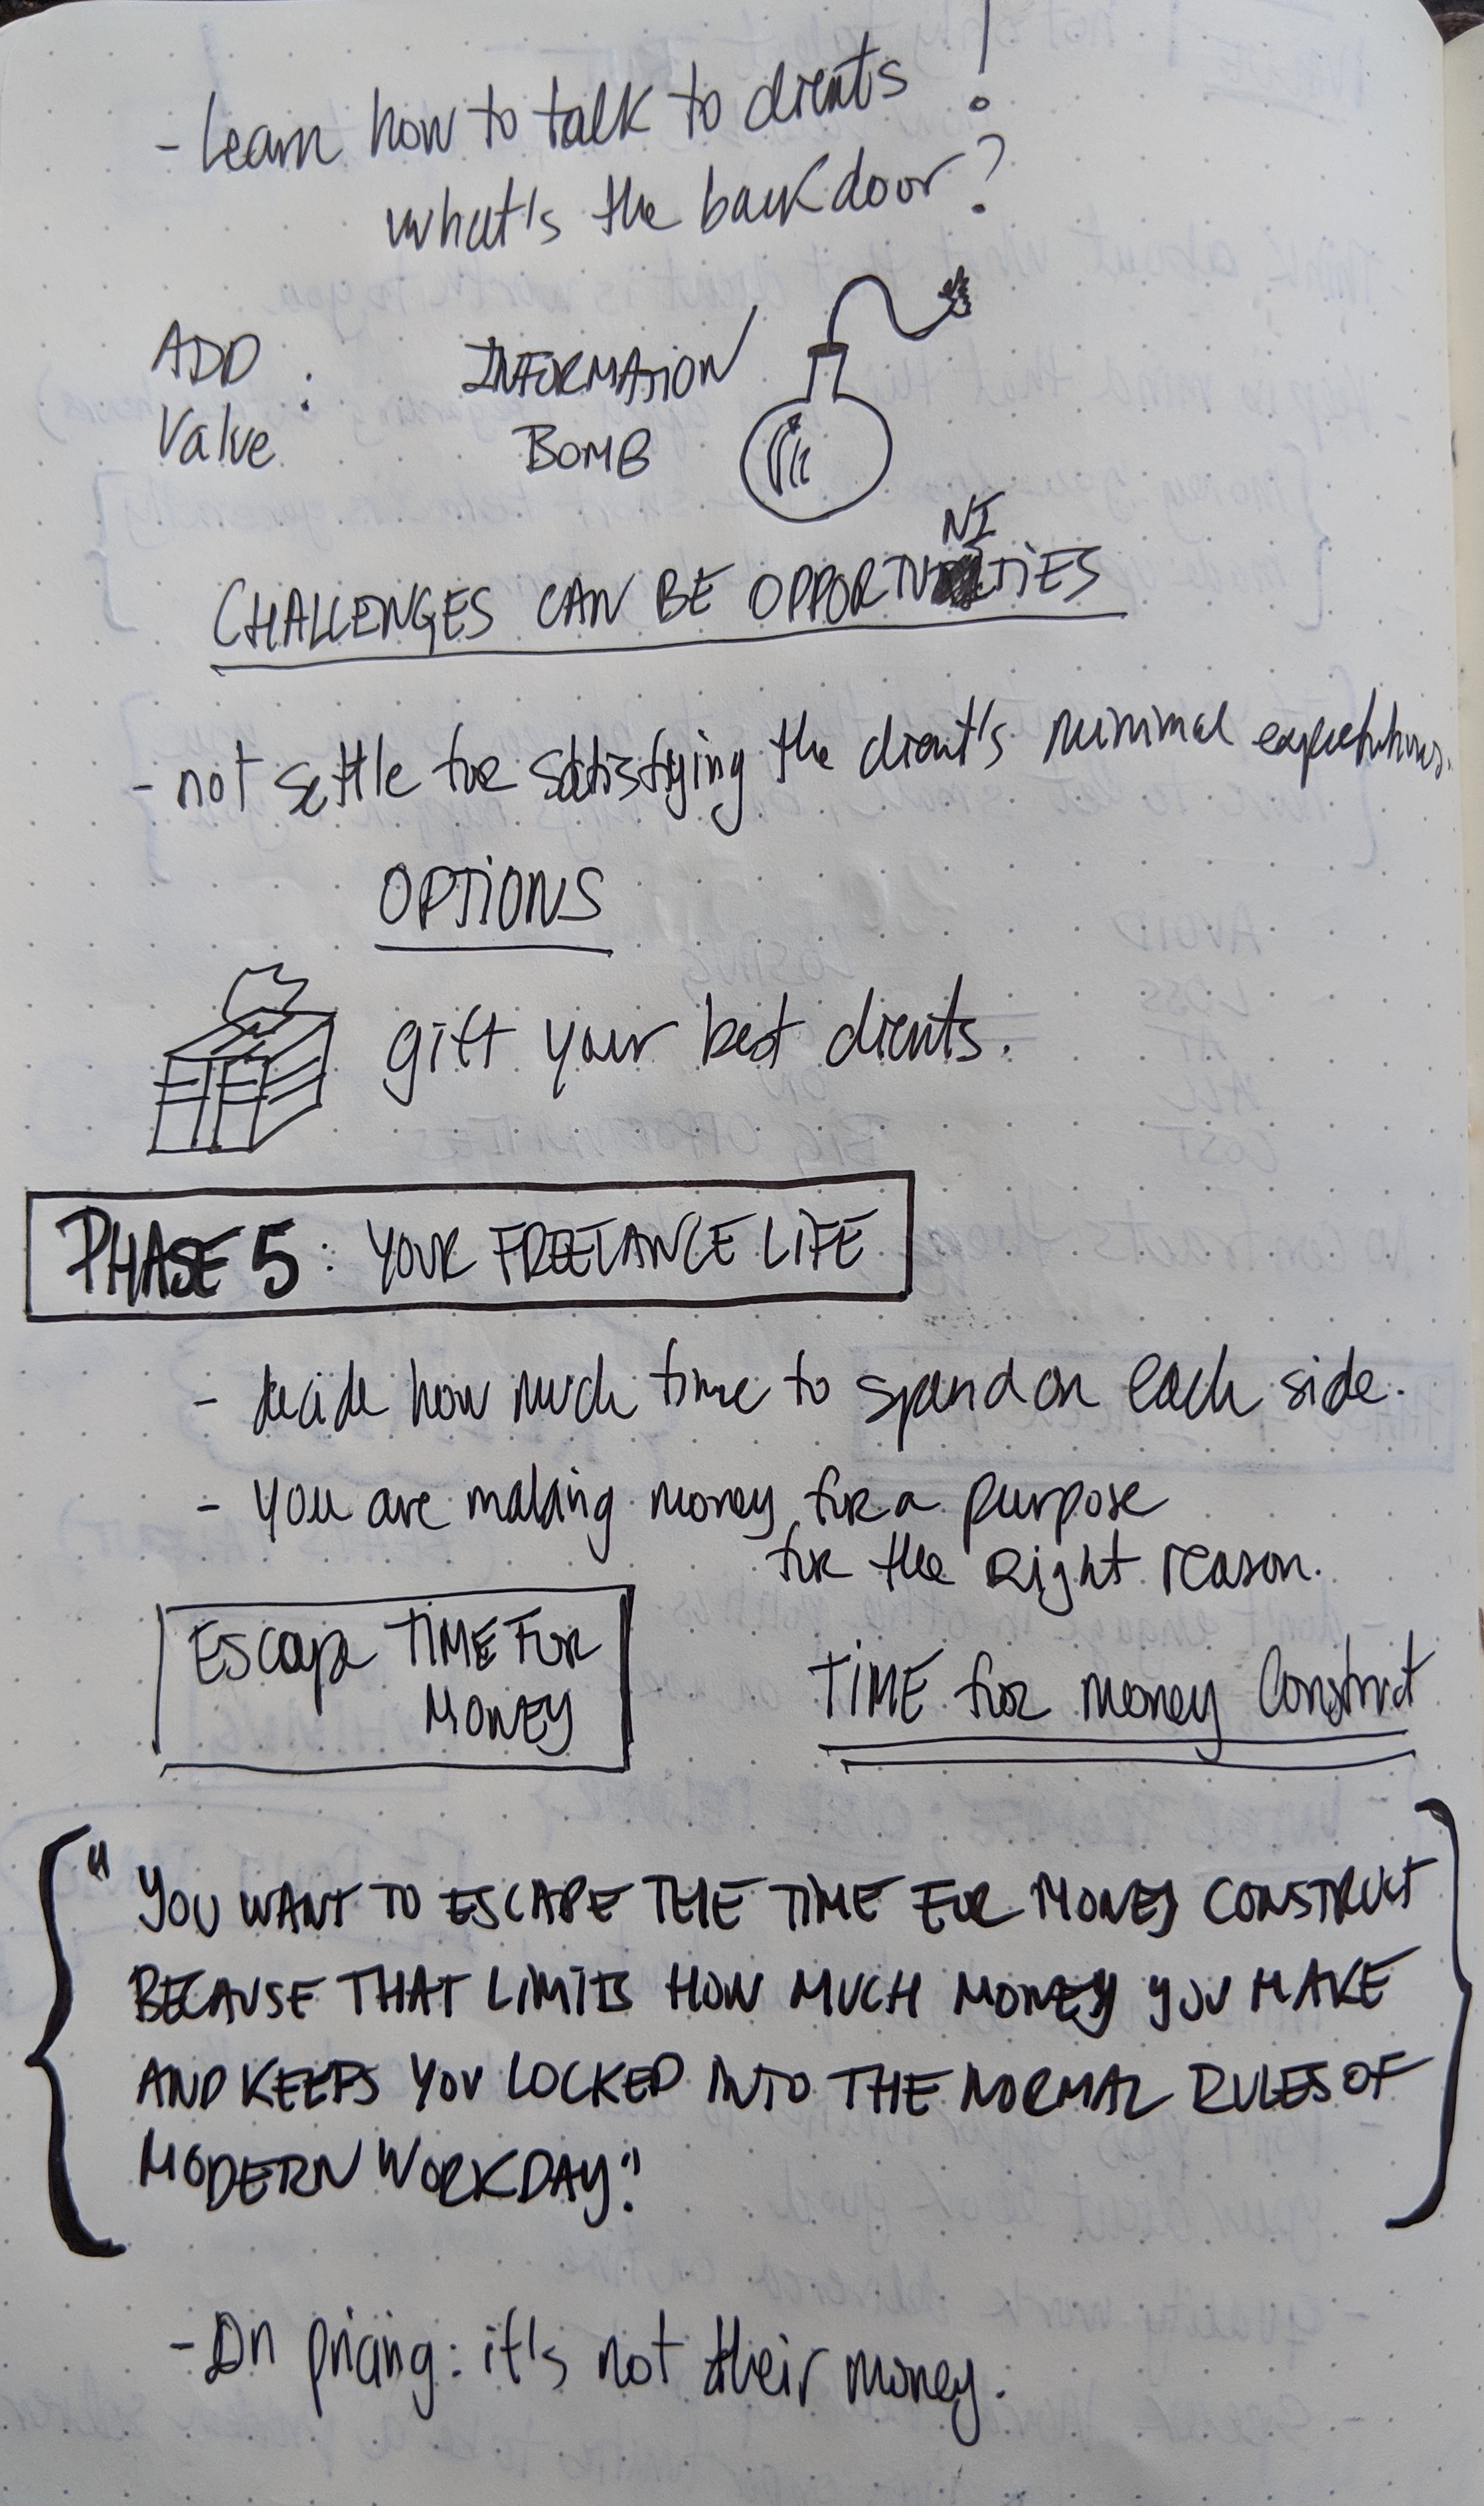 - Learn how to talk to clients!
what's the backdoor?
ADD
Value :
INFORMATION
BOMB
CHALLENGES CAN BE OPPORTUNITIES
- not settle for satisfying the client's minimal expectations.
OPTIONS
gift your best clients.
PHASE 5: YOUR FREELANCE LIFE
- decide how much time to spend on each side.
- You are making money for a purpose
for the right reason.
Escape TIME FOR
MONEY
TIME for money Construct
" YOU WANT TO ESCAPE THE TIME FOR MONEY CONSTRUCT
BECAUSE THAT LIMITS HOW MUCH MONEY YOU MAKE
AND KEEPS YOU LOCKED INTO THE NORMAL RULES OF
MODERN WORKDAY."
- On pricing: it's not their money.